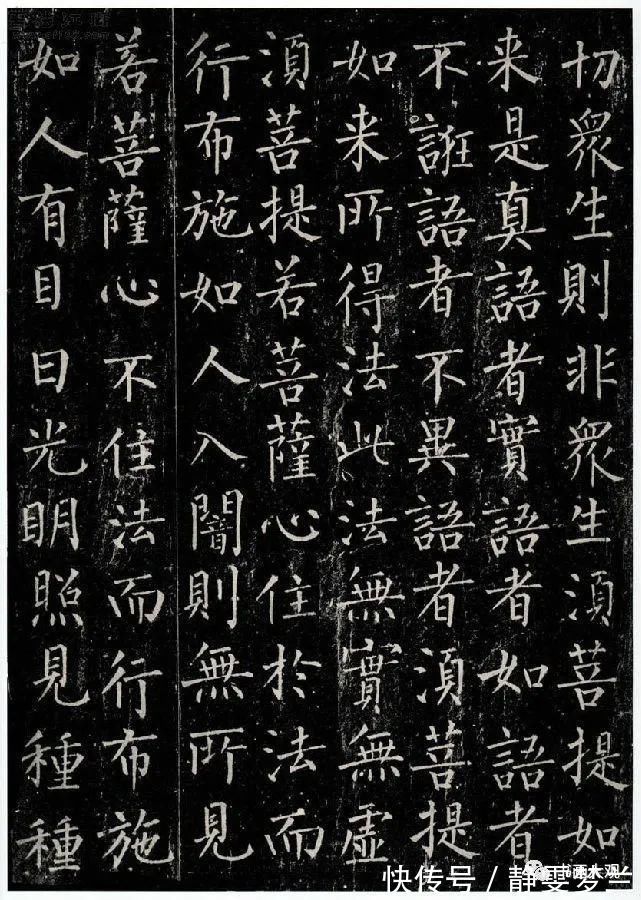 切眾生則非眾生湏菩提如
来是真語者實語者如語者
不誑語者不異語者湏菩提
如来所得法此法無實無虛
湏菩提若菩薩心住於法而
行布施如人入闇則無所見
若菩薩心不住法而行布施
如人有目日光明照見種種
快传号／静雯
书画大观